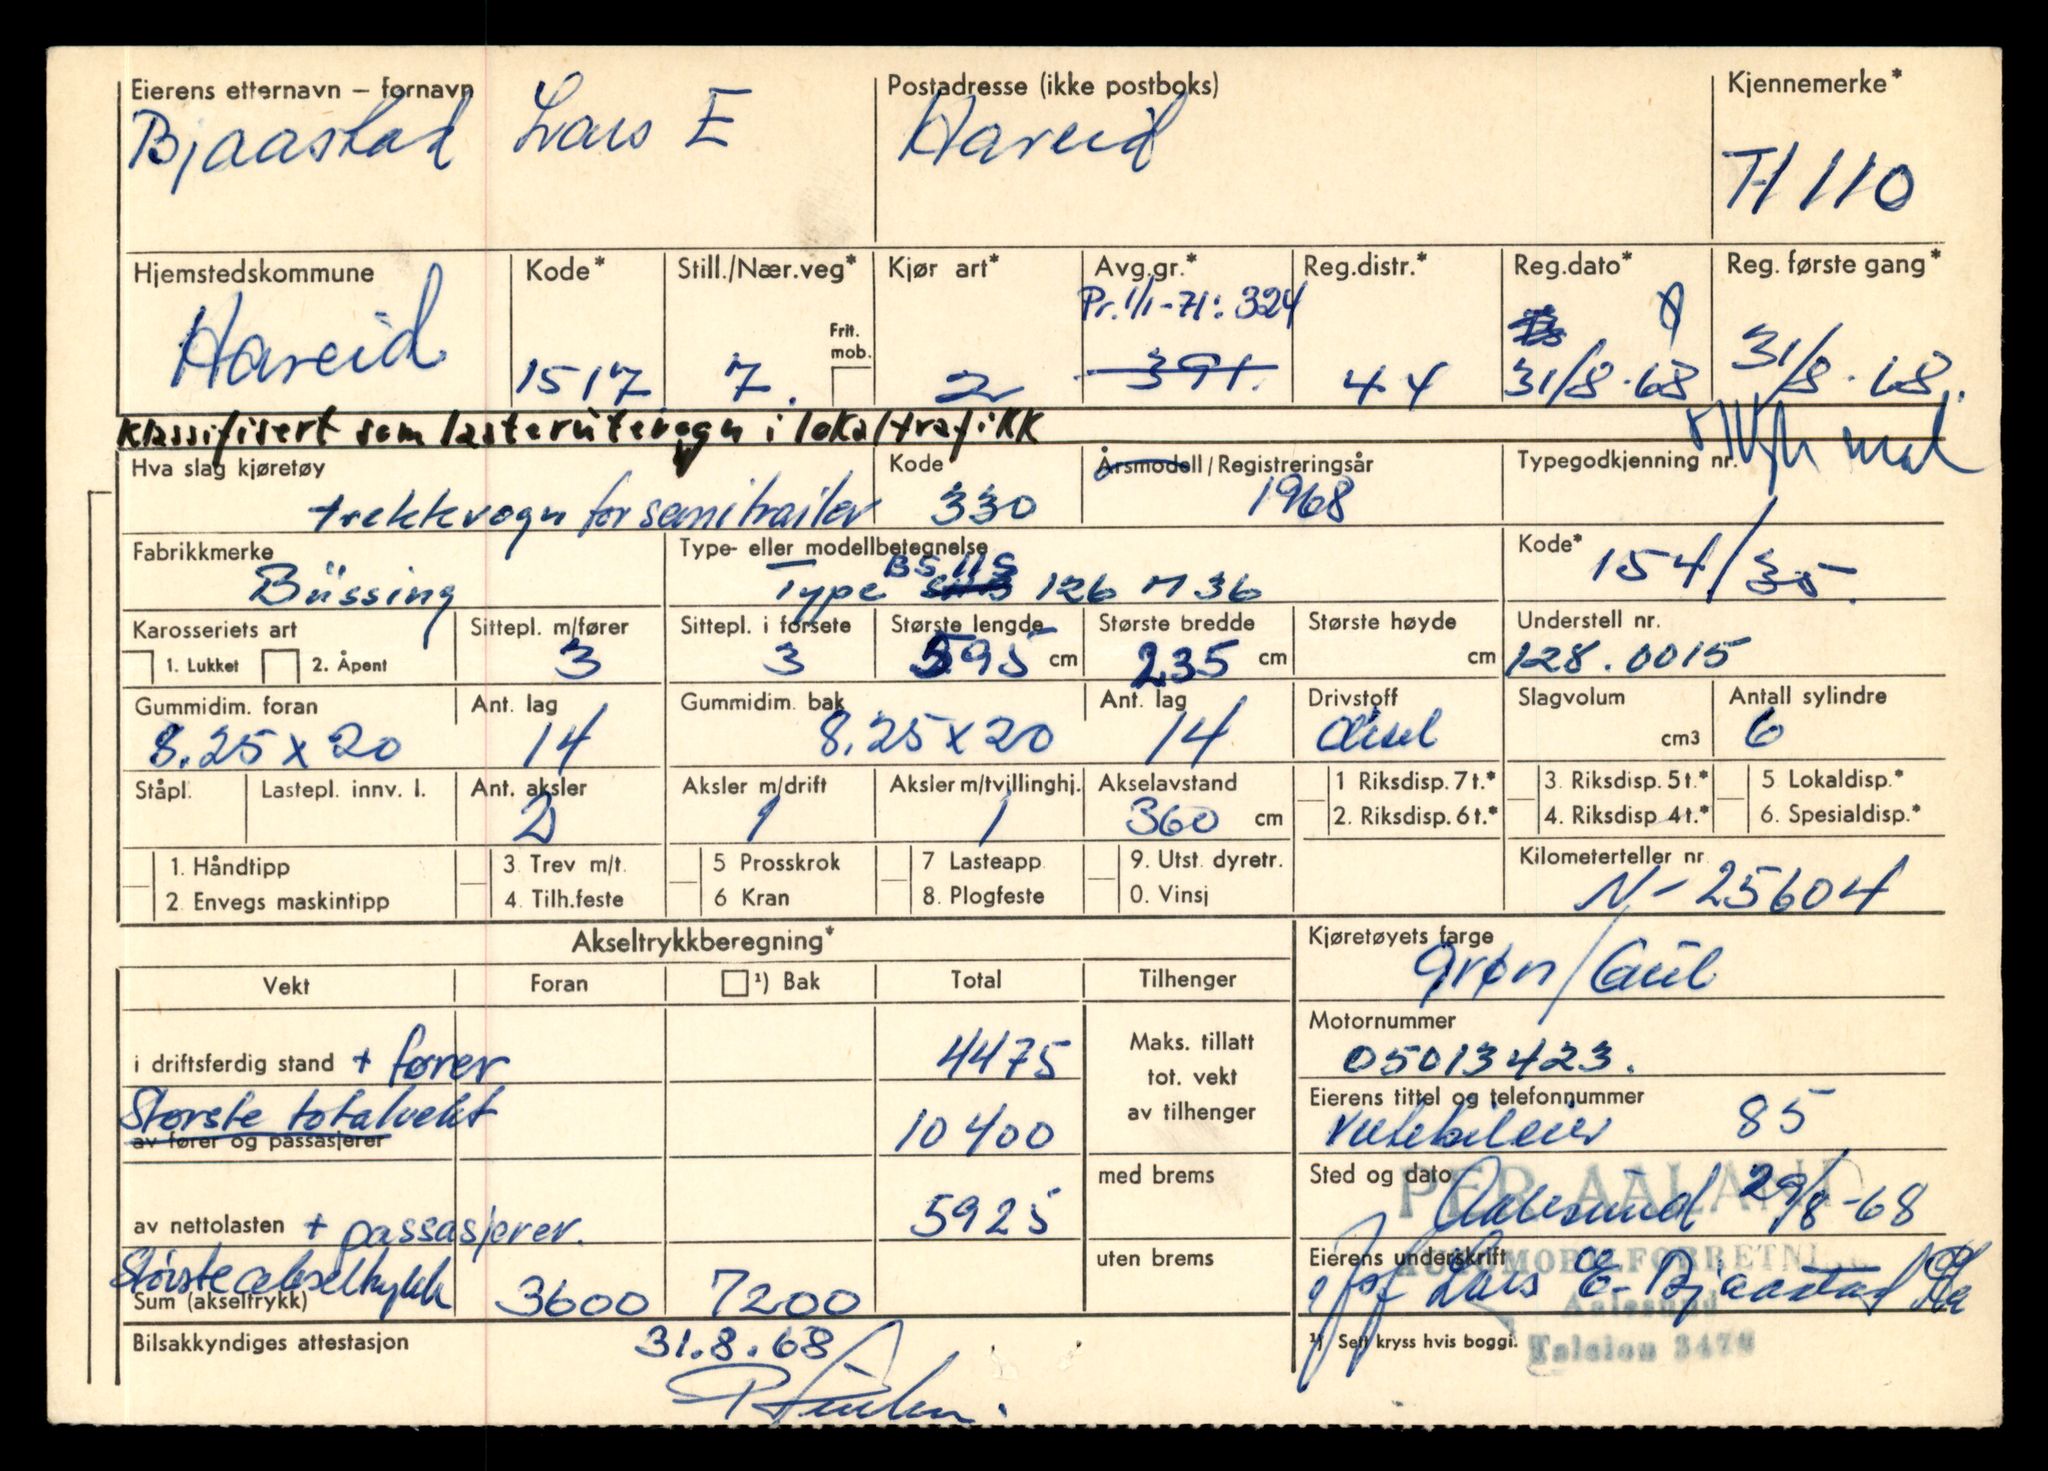 Eierens etternavn – fornavn Postadresse (ikke postboks) Kjennemerke*
Bjaastad Lars E Hareid
T-1110
Hjemstedskommune Kode* Still./Nær.veg* Kjør art* Avg.gr.* Reg.distr.* Reg.dato* Reg. første gang*
Pr. 1/1-71: 324
Frit.
mob.
Hareid 1517 7. 2 391. 44 31/8-68 31/8-68.
Klassifisert som lasterutevogn i lokaltrafikk
Hva slag kjøretøy Kode Årsmodell/Registreringsår Typegodkjenning nr.
trekkvogn for semitrailer 330 1968
Fabrikkmerke Type- eller modellbetegnelse Kode*
Büssing Type BS 11S 126 M 36 154/35.
Karosseriets art Sittepl. m/fører Sittepl. i forsete Største lengde Største bredde Største høyde Understell nr.
1. Lukket 2. Åpent 3 3 595 cm 235 cm cm 128.0015
Gummidim. foran Ant. lag Gummidim. bak Ant. lag Drivstoff Slagvolum Antall sylindre
8.25 x 20 14 8.25 x 20 14 diesel cm3 6
Ståpl. Lastepl. innv. l. Ant. aksler Aksler m/drift Aksler m/tvillinghj. Akselavstand 1 Riksdisp. 7 t.* 3. Riksdisp. 5 t.* 5 Lokaldisp.*
2 1 1 360 cm 2. Riksdisp. 6 t.* 4. Riksdisp 4 t.* 6. Spesialdisp.*
1. Håndtipp 3. Trev m/t. 5 Prosskrok 7 Lasteapp. 9. Utst. dyretr. Kilometerteller nr
2 Envegs maskintipp 4. Tilh.feste 6 Kran 8. Plogfeste 0. Vinsj N-25604
Akseltrykkberegning* Kjøretøyets farge
Vekt Foran ¹) Bak Total Tilhenger grøn/Gul
Motornummer
i driftsferdig stand + fører 4475 Maks. tillatt 05013423.
tot. vekt
av tilhenger
Eierens tittel og telefonnummer
Største totalvekt 10400 rutebileier 85
av fører og passasjerer
med brems Sted og dato
PER AALAND
av nettolasten + passasjerer. 5925 Aalesund 29/8-68
uten brems Eierens underskrift
AUTOMOBILFORRETNING
Største akseltrykk
Sum (akseltrykk) 3600 7200 Lars E. Bjaastad
Aalesund
Bilsakkyndiges attestasjon 31.8.68 ¹) Sett kryss hvis boggi.
Telefon 3470